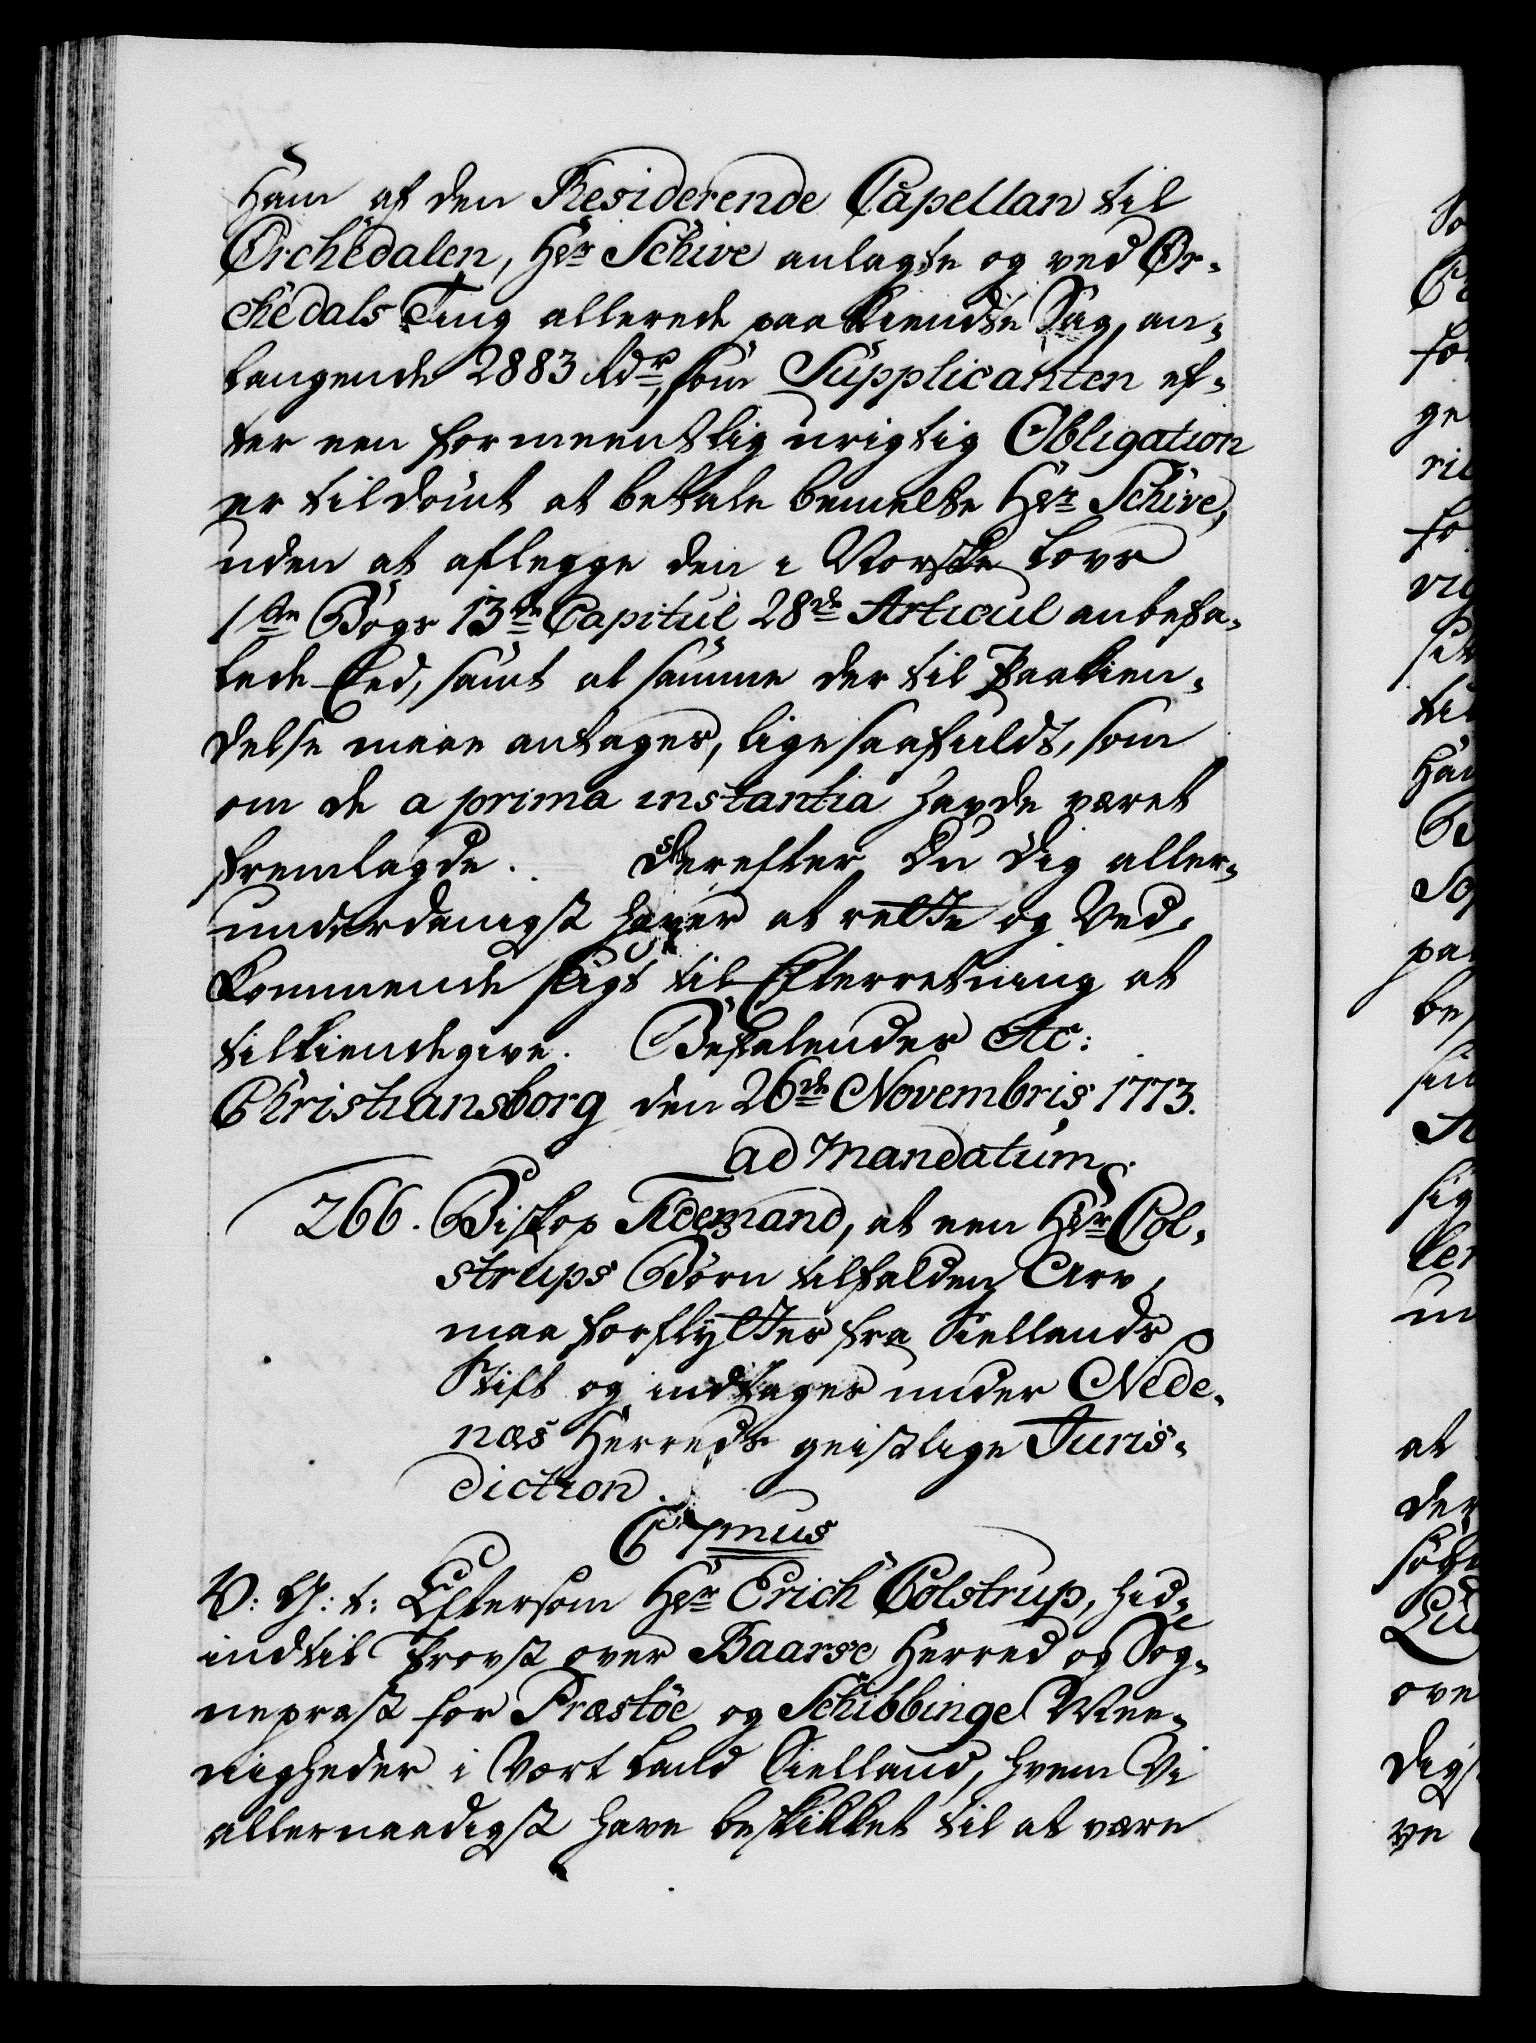 ham af den Residerende Capellan til
Orchedalen, Hr Schive anlagte og ved Or-
chedals Ting allerede paakiendte Sag, an-
langende 2883 Rdr, som Supplicanten ef-
ter een formeentlig urigtig Obligation
er tildömt at betale bemelte Hr Schive,
uden at aflegge den i Norske Lovs
1ste Bogs 13de Capitul 28de Articul anbefa-
lede Eed, samt at samme der til Paakien-
delse maae antages, ligesaafuldt, som
om de a prima instantia havde været
fremlagde. Derefter Du dig aller-
underdanigst haver at rette og Ved-
kommende sligt til Efterretning at
tilkiendegive. Befalendes etc:
Christiansborg den 26de Novembris 1773.
ad Mandatum.
266. Biskop Tidemand, at een Hr Col-
strups Börn tilfalden Arv,
maa forflyttes fra Siellands
Stift og indtages under Nede-
næs Herreds geistlige Juris-
diction.
C 7mus
V: G: t: Eftersom Hr Erich Colstrup, hid-
indtil Provst over Baarse Herred og Sog-
neprest for Præstöe og Schibbinge Mee-
nigheder i Vort Land Sielland, hvem Vi
allernaadigst have beskikket til at være